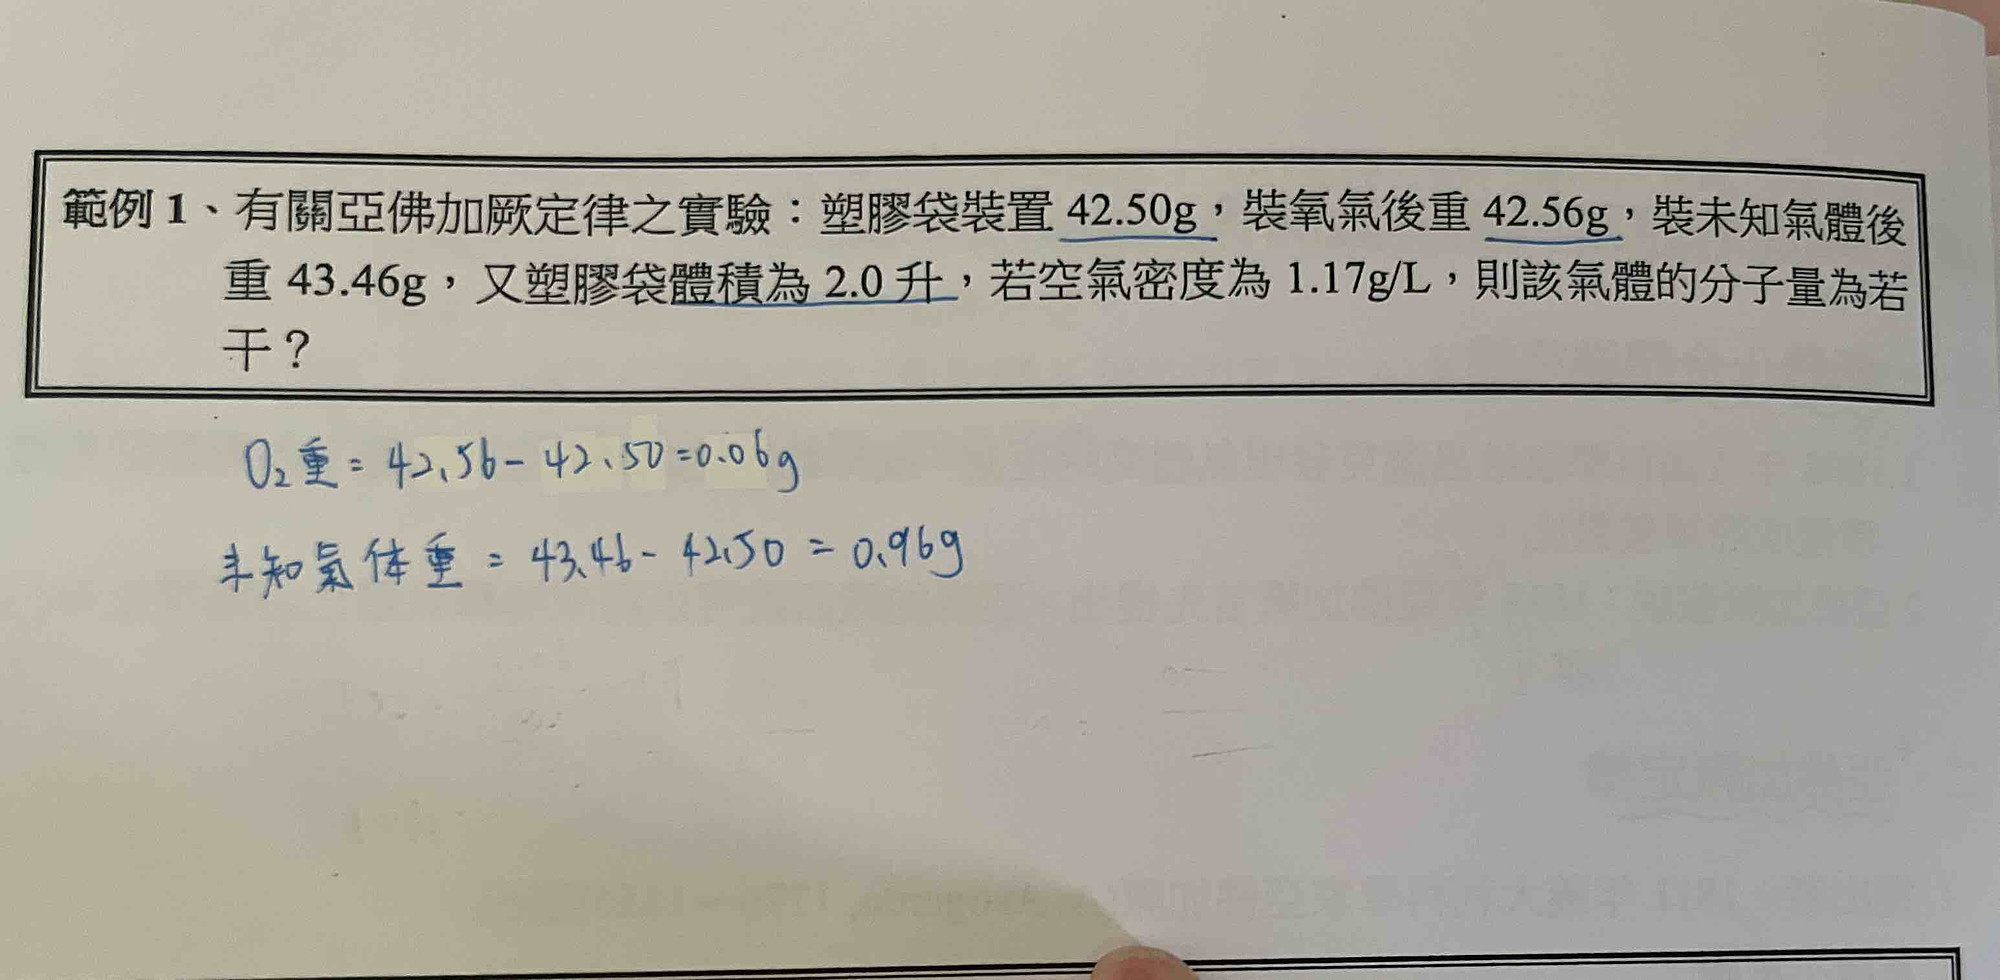 範例 1、有關亞佛加厥定律之實驗：塑膠袋裝置 42.50g，裝氧氣後重 42.56g，裝未知氣體後
重 43.46g，又塑膠袋體積為 2.0 升，若空氣密度為 1.17g/L，則該氣體的分子量為若
干？
O₂重 = 42.56 - 42.50 = 0.06g
未知氣体重 = 43.46 - 42.50 = 0.96g